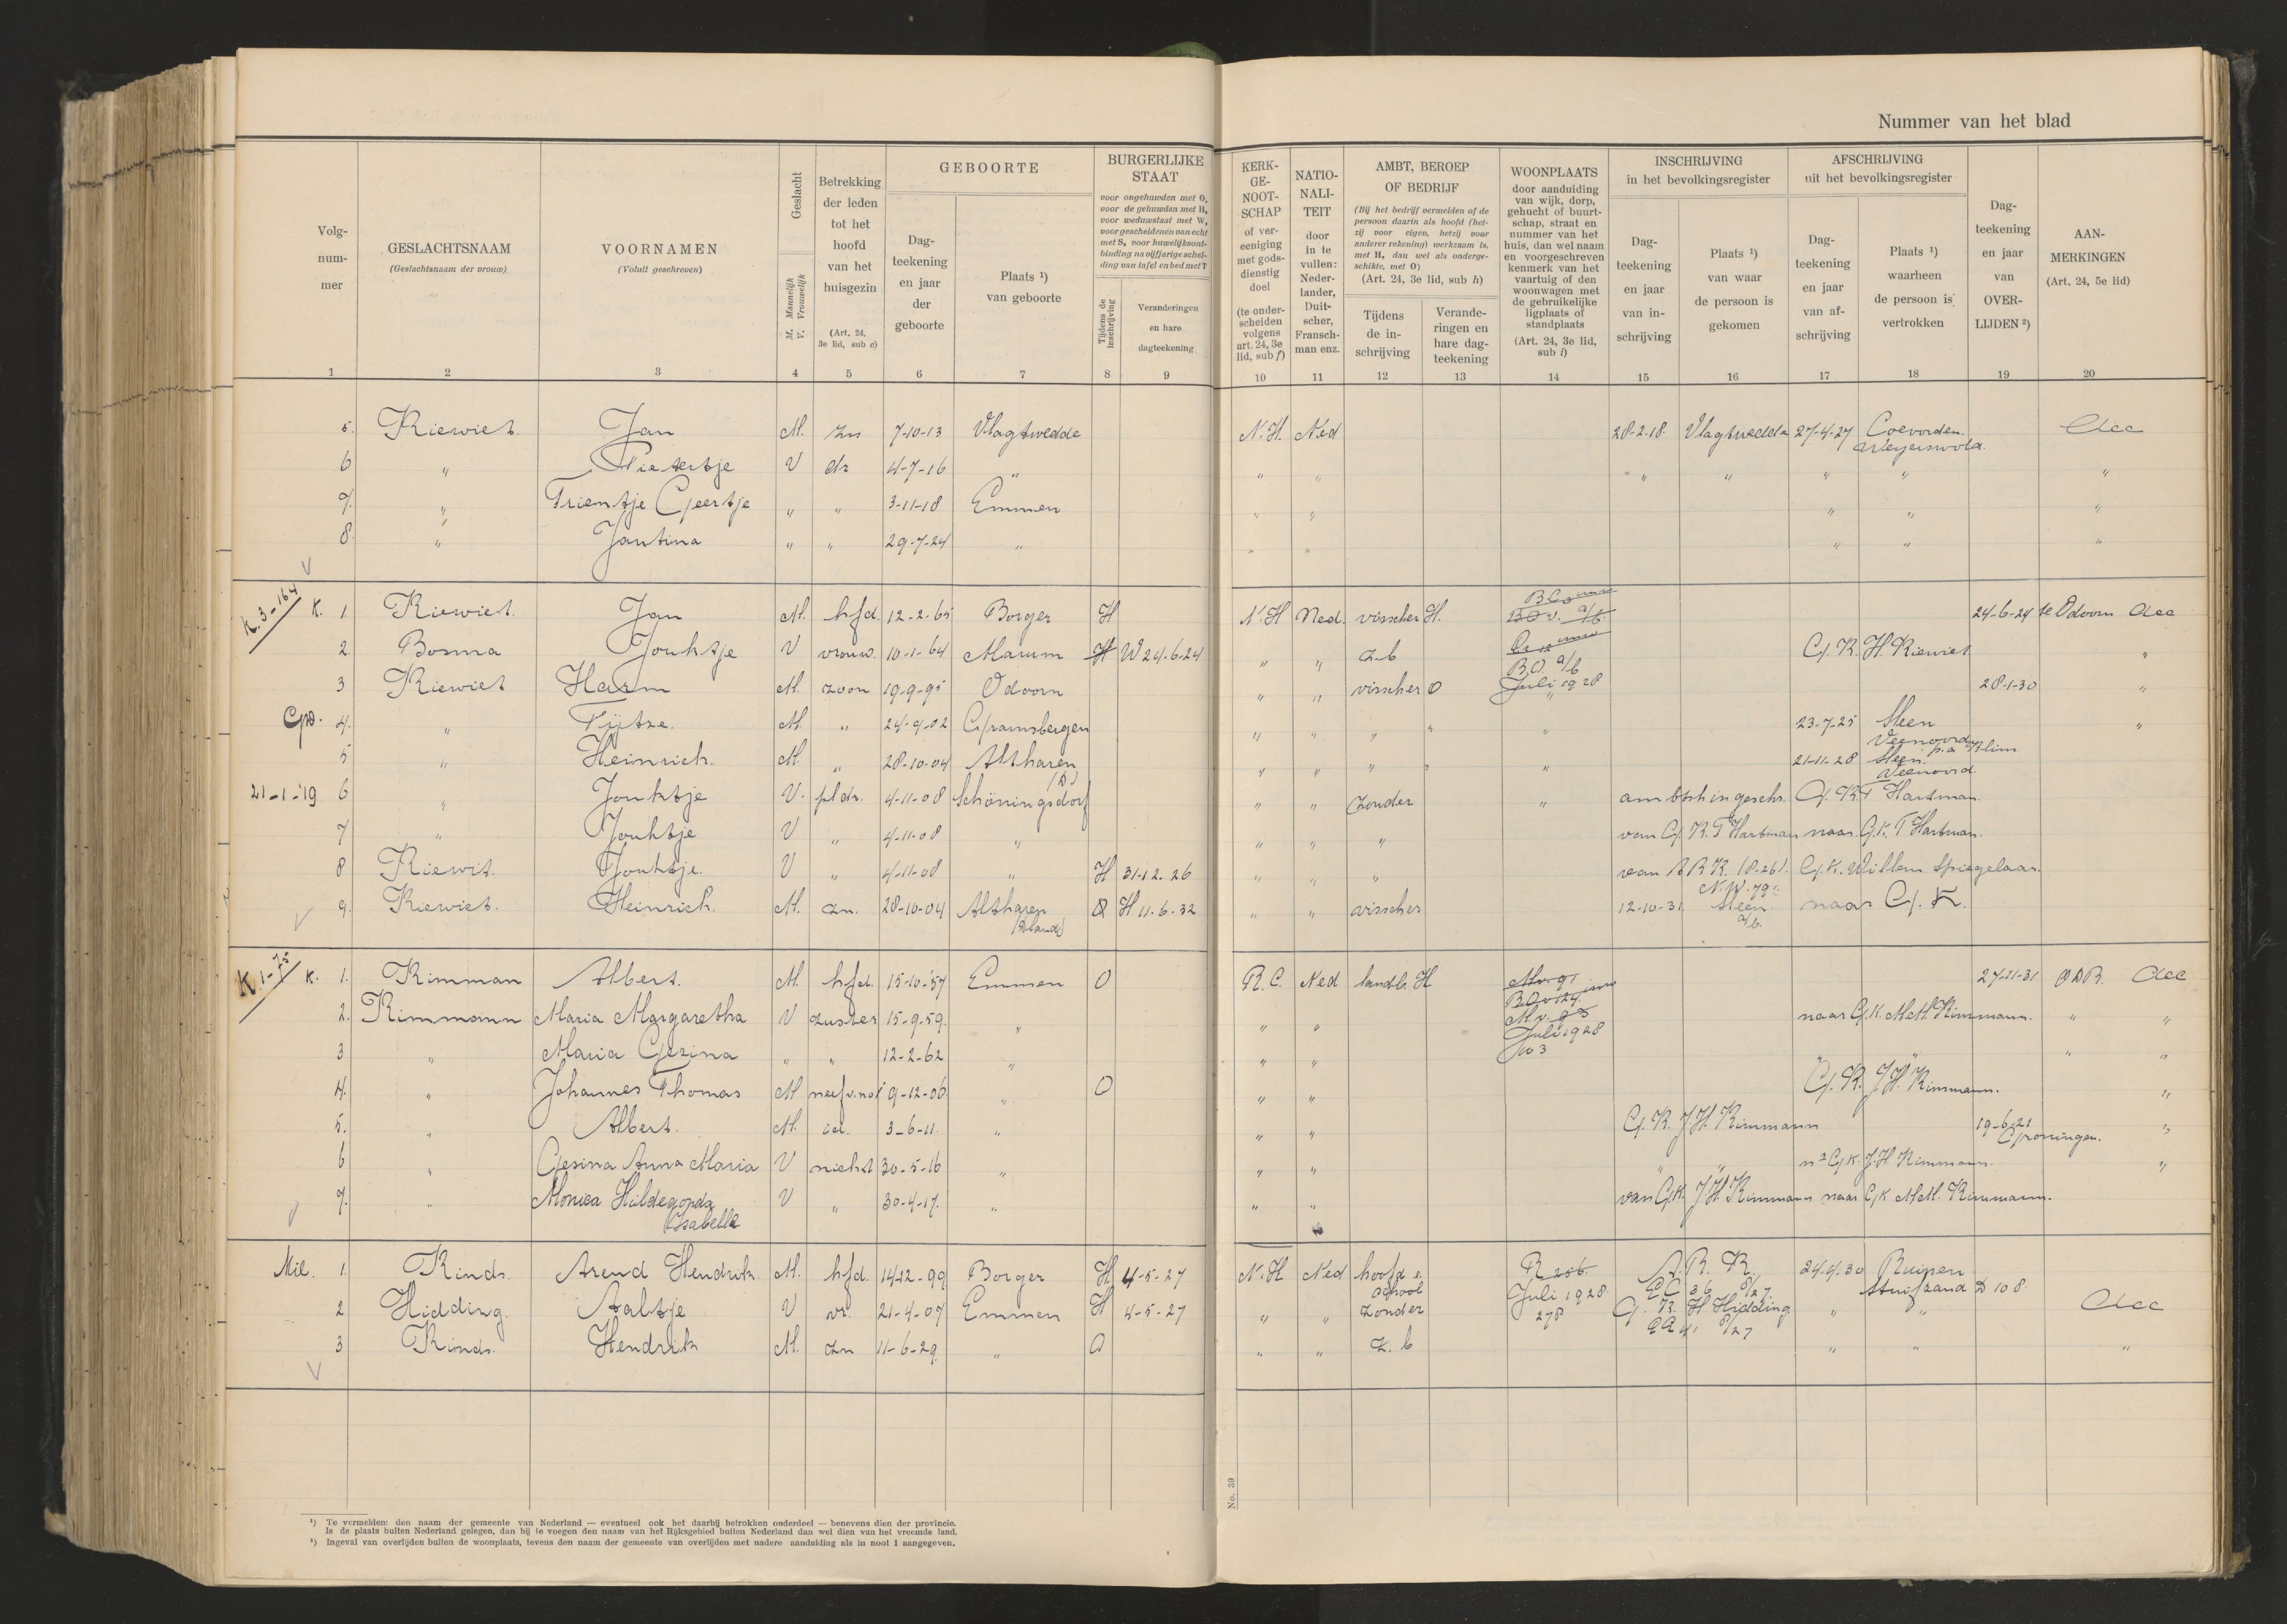 Nummer van het blad
Volg-
num-
mer
GESLACHTSNAAM
(Geslachtsnaam der vrouw)
VOORNAMEN
(Voluit geschreven)
Geslacht
M. Mannelijk
V. Vrouwelijk
Betrekking
der leden
tot het
hoofd
van het
huisgezin
(Art. 24,
3e lid, sub c)
GEBOORTE
Dag-
teekening
en jaar
der
geboorte
Plaats ¹)
van geboorte
BURGERLIJKE
STAAT
voor ongehuwden met O,
voor de gehuwden met H,
voor weduwstaat met W,
voor gescheidenen van echt
met S, voor huwelijksont-
binding na vijfjarige schei-
ding van tafel en bed met T
Tijdens de
inschrijving
Veranderingen
en hare
dagteekening
KERK-
GE-
NOOT-
SCHAP
of ver-
eeniging
met gods-
dienstig
doel
(te onder-
scheiden
volgens
art. 24, 3e
lid, sub f)
NATIO-
NALI-
TEIT
door
in te
vullen:
Neder-
lander,
Duit-
scher,
Fransch-
man enz.
AMBT, BEROEP
OF BEDRIJF
(Bij het bedrijf vermelden of de
persoon daarin als hoofd (het-
zij voor eigen, hetzij voor
anderer rekening) werkzaam is,
met H, dan wel als onderge-
schikte, met O)
(Art. 24, 3e lid, sub h)
Tijdens
de in-
schrijving
Verande-
ringen en
hare dag-
teekening
WOONPLAATS
door aanduiding
van wijk, dorp,
gehucht of buurt-
schap, straat en
nummer van het
huis, dan wel naam
en voorgeschreven
kenmerk van het
vaartuig of den
woonwagen met
de gebruikelijke
ligplaats of
standplaats
(Art. 24, 3e lid,
sub i)
INSCHRIJVING
in het bevolkingsregister
Dag-
teekening
en jaar
van in-
schrijving
Plaats ¹)
van waar
de persoon is
gekomen
AFSCHRIJVING
uit het bevolkingsregister
Dag-
teekening
en jaar
van af-
schrijving
Plaats ¹)
waarheen
de persoon is
vertrokken
Dag-
teekening
en jaar
van
OVER-
LIJDEN ²)
AAN-
MERKINGEN
(Art. 24, 5e lid)
1 2 3 4 5 6 7 8 9 10 11 12 13 14 15 16 17 18 19 20
5. Kiewiet. Jan M. zn 7-10-13 Vlagtwedde N.H. Ned 28-2-18 Vlagtwedde 27-4-27 Coevorden.
6 " Pietertje V dr 4-7-16 " " " " " " " "
7. " Trientje Geertje " " 3-11-18 Emmen " " " " "
8. " Jantina " " 29-7-24 " " " " " "
K. 3-164 K. 1. Kiewiet. Jan M. hfd. 12-2-65 Borger H N.H Ned. visscher H. 24-6-24 te Odoorn
2. Bosma Jouktje V vrouw. 10-1-64 Marum H W 24-6-24 " " z.b G.K. H. Kiewiet "
BO a/b
3 Kiewiet Harm M. zoon 19-9-95 Odoorn " " visscher O Juli 1928 28-1-30 "
Gpd. 4. " Tijtze. M. " 24-9-02 Gramsbergen " " " " " 23-7-25 Sleen "
Veenoord
5 " Heinrich. M. " 28-10-04 Altharen " " " " 21-11-28 Sleen.
(D) Veenoord.
21-1-'19 6 " Jouktje V. pl dr. 4-11-08 Schöningsdorf " " Zonder " ambtsh ingeschr. G.K. T Hartman.
7 " Jouktje V " 4-11-08 " " " " van G.K. T Hartman naar G.K. T Hartman.
8 Kiewit. Jouktje. V " 4-11-08 " H 31-12-26 " " " van A.R.K. G.K. Willem Spiegelaar.
9. Kiewiet. Heinrich. M. zn. 28-10-04 Altharen H 11-6-32 " " visscher 12-10-31 Sleen. naar G.K.
a/b.
K. 1-75 K. 1. Kimman Albert. M. hfd. 15-10-'57 Emmen O R.C. Ned landb. H Mv. 91 27-11-31
BO v 124
2. Kimmann Maria Margaretha V zuster 15-9-59. " " " naar G.K. M.M. Kimmann. " "
Juli 1928
3 " Maria Gezina " " 12-2-62 " " " " "
4. " Johannes Thomas M neef 9-12-06 " O " " G.K. J.H. Kimmann. "
5. " Albert. M. id. 3-6-11. " " " G.K. J.H. Kimmann 19-6-21 "
Groningen.
6 " Gesina Anna Maria V nicht 30-5-16 " " " " " G.K. J.H. Kimmann. "
7. " Monica Hildegonda V " 30-4-17. " " " van G.K. J.H. Kimmann naar G.K. M.M. Kimmann.
Isabella
Mil. 1 Kinds. Arend Hendrik M. hfd. 14-12-99 Borger H 4-5-27 N.H. Ned hoofd e. R 256. A.R.K. 24.4.30 Ruinen
school Juli 1928. Stuifzand D 108.
2 Hidding. Aaltje V vr. 21-4-07 Emmen H 4-5-27 " " zonder 278 G.K. H Hidding " "
3 Kinds. Hendrik M. zn 11-6-29. " O " " z.b " " "
No. 39
¹) Te vermelden: den naam der gemeente van Nederland — eventueel ook het daarbij betrokken onderdeel — benevens dien der provincie.
Is de plaats buiten Nederland gelegen, dan bij te voegen den naam van het Rijksgebied buiten Nederland dan wel dien van het vreemde land.
²) Ingeval van overlijden buiten de woonplaats, tevens den naam der gemeente van overlijden met nadere aanduiding als in noot 1 aangegeven.